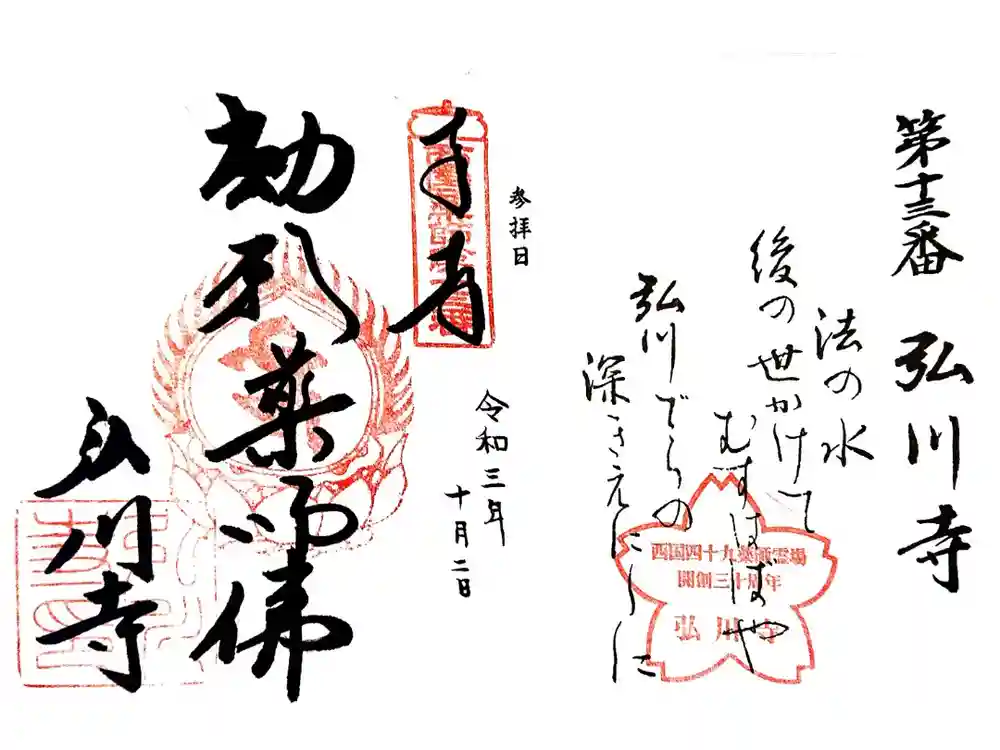 第十三番 弘川寺
法の水
後の世かけて
むすはばや
弘川でらの
深きえにしに
西国四十九薬師霊場
開創三十周年
弘川寺
参拝日
令和三年
十月二日
奉拝
薬師佛
弘川寺